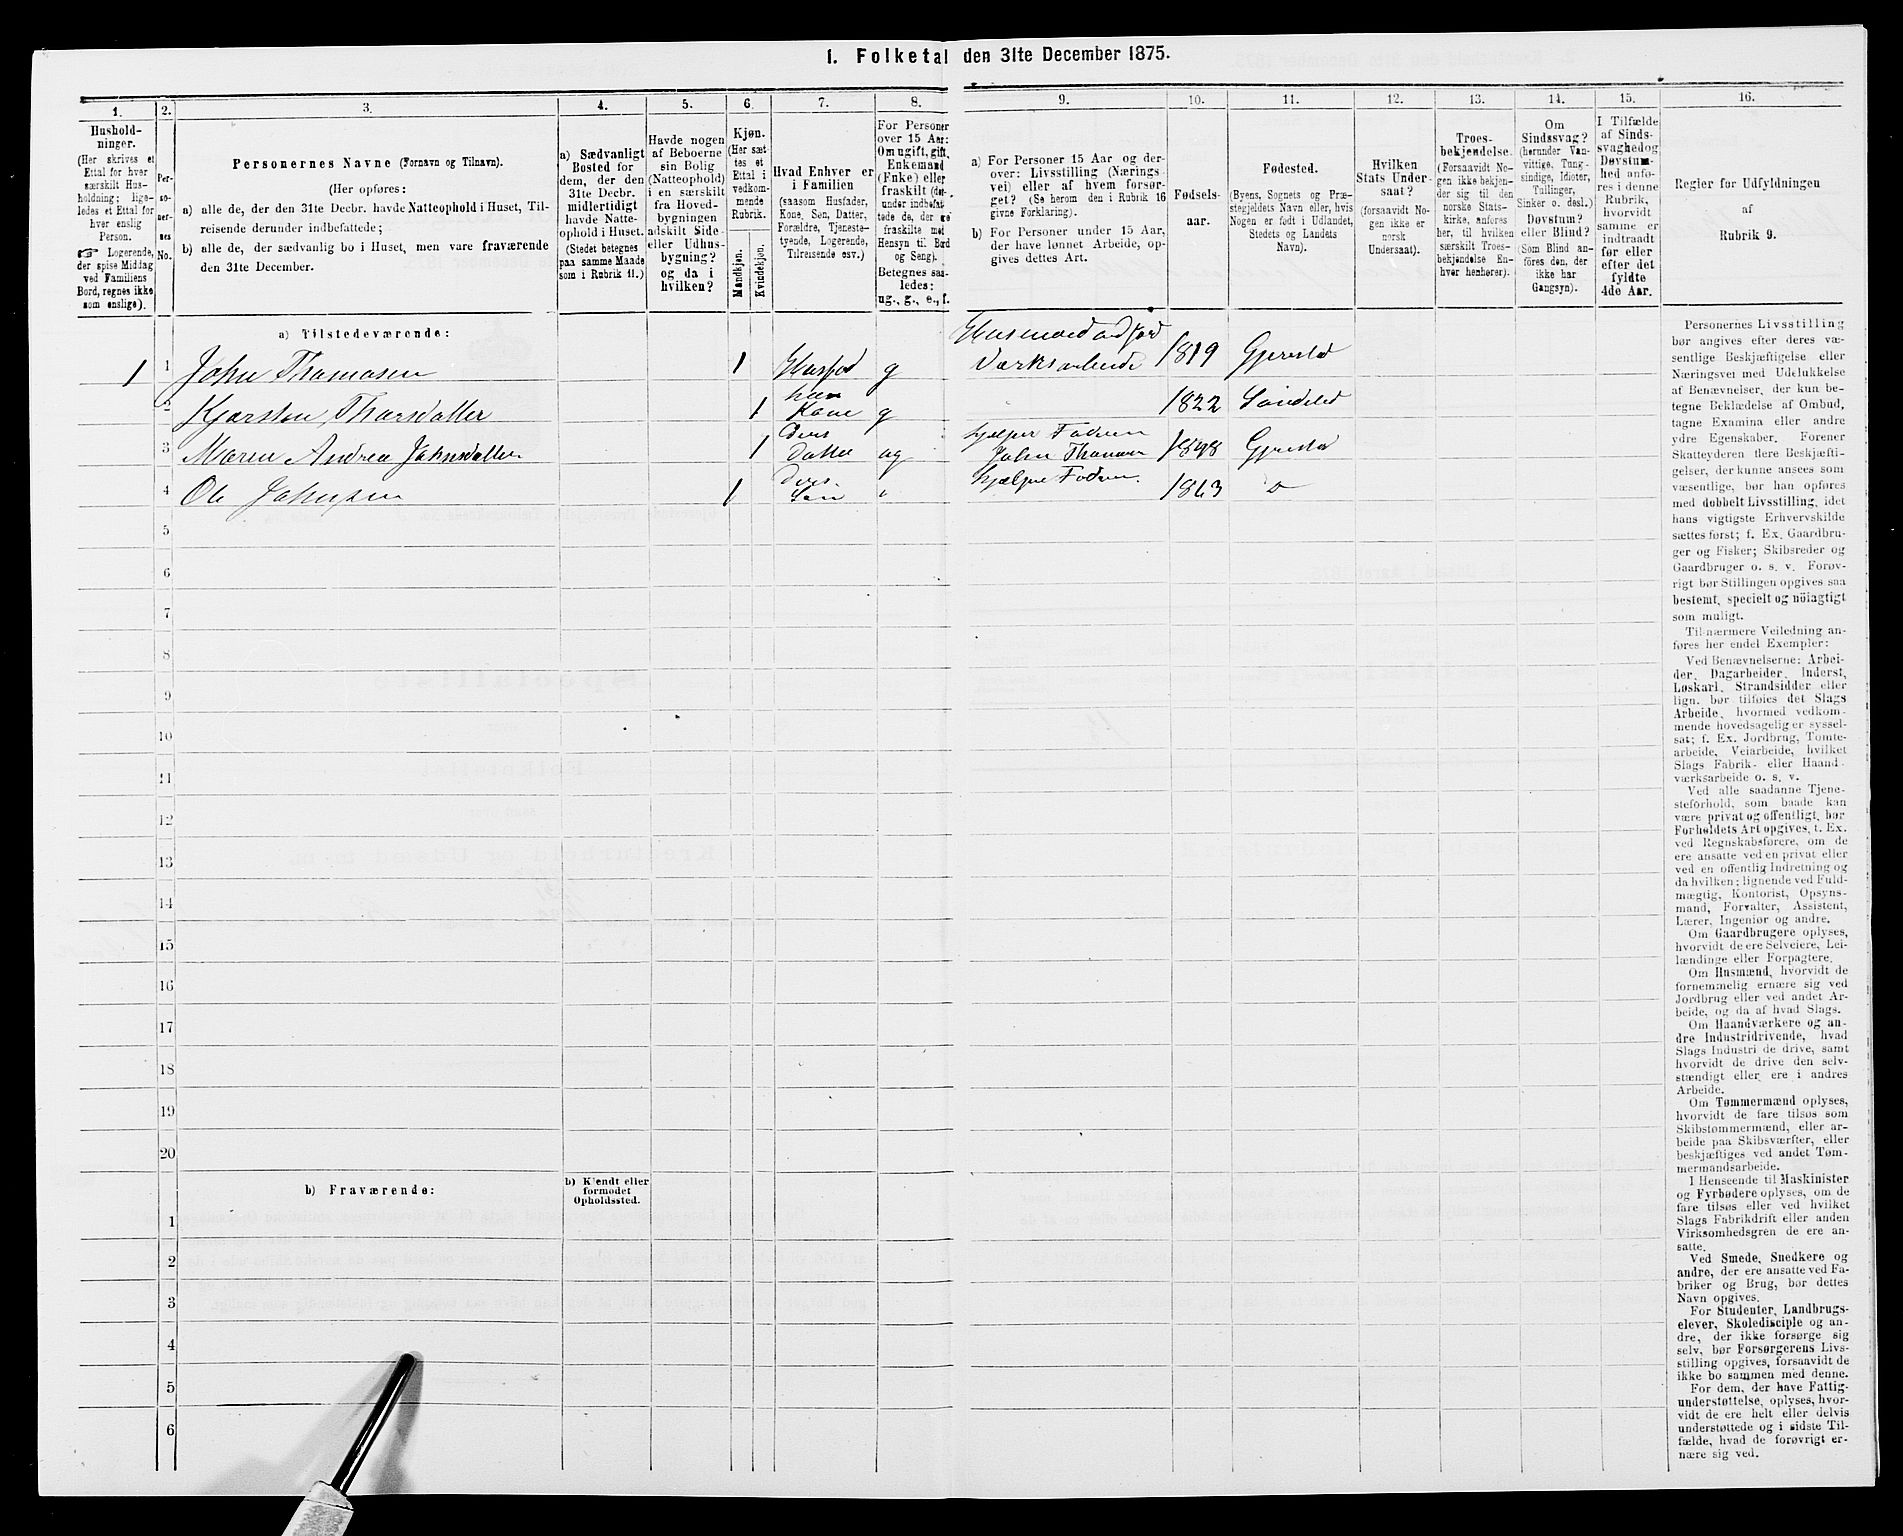 1. Folketal den 31te December 1875.
1.
2.
3.
4.
5.
6.
7.
8.
9.
10.
11.
12.
13.
14.
15.
16.
Hushold-
ninger.
(Her skrives et
Ettal for hver
særskilt Hus-
holdning; lige-
ledes et Ettal for
hver enslig
Person.
☞ Logerende,
der spise Middag
ved Familiens
Bord, regnes ikke
som enslige).
Per-
so-
ner-
nes
No.
Personernes Navne (Fornavn og Tilnavn).
(Her opføres:
a) alle de, der den 31te Decbr. havde Natteophold i Huset, Til-
reisende derunder indbefattede;
b) alle de, der sædvanlig bo i Huset, men vare fraværende
den 31te December.
a) Sædvanligt
Bosted for
dem, der den
31te Decbr.
midlertidigt
havde Natte-
ophold i Huset.
(Stedet betegnes
paa samme Maade
som i Rubrik 11.)
Havde nogen
af Beboerne
sin Bolig
(Natteophold)
i en særskilt
fra Hoved-
bygningen
adskilt Side-
eller Udhus-
bygning?
og da i
hvilken?
Kjøn.
(Her sæt-
tes et
Ettal i
vedkom-
mende
Rubrik.
Mandkjøn.
Kvindekjøn.
Hvad Enhver er
i Familien
(saasom Husfader,
Kone, Søn, Datter,
Forældre, Tjeneste-
tyende, Logerende,
Tilreisende osv.)
For Personer
over 15 Aar:
Om ugift, gift,
Enkemand
(Enke) eller
fraskilt (der-
under indbefat-
tede de, der ere
fraskilte med
Hensyn til Bord
og Seng).
Betegnes saa-
ledes:
ug., g., e., f.
a) For Personer 15 Aar og der-
over: Livsstilling (Nærings-
vei) eller af hvem forsør-
get? (Se herom den i Rubrik 16
givne Forklaring).
b) For Personer under 15 Aar,
der have lønnet Arbeide, op-
gives dettes Art.
Fødsels-
aar.
Fødested.
(Byens, Sognets og Præ-
stegjeldets Navn eller, hvis
Nogen er født i Udlandet,
Stedets og Landets
Navn).
Hvilken
Stats Under-
saat?
(forsaavidt No-
gen ikke er
norsk
Undersaat).
Troes-
bekjendelse.
(Forsaavidt No-
gen ikke bekjen-
der sig til den
norske Stats-
kirke, anføres
her, til hvilken
særskilt Troes-
bekjendelse En-
hver henhører).
Om
Sindssvag?
(herunder Van-
vittige, Tung-
sindige, Idioter,
Tullinger,
Sinker o. desl.)
Døvstum?
eller Blind?
(Som Blind an-
føres den, der
ikke har
Gangsyn).
I Tilfælde
af Sinds-
svaghed og
Døvstum-
hed anfø-
res i denne
Rubrik,
hvorvidt
samme er
indtraadt
før eller
efter det
fyldte
4de Aar.
Regler for Udfyldningen
af
Rubrik 9.
a) Tilstedeværende:
1 1 John Thomasen 1 Husfad g Værksarbeide 1819 Gjerestad
2 Kjersten Thorsdatter 1 hans Kone g 1822 Søndeled
3 Maren Andrea Johnsdatter 1 Deres Datter ug hjelper Faderen John Thomasen Gjerestad
4 Ole Johnsen 1 deres Søn " hjælper Faderen 1863 do
5
6
7
8
9
10
11
12
13
14
15
16
17
18
19
20
b) Fraværende:
b) Kjendt eller
formodet
Opholdssted.
1
2
3
4
5
6
Personernes Livsstilling
bør angives efter deres væ-
sentlige Beskjæftigelse eller
Næringsvei med Udelukkelse
af Benævnelser, der kun be-
tegne Beklædelse af Ombud,
tagne Examina eller andre
ydre Egenskaber. Forener
Skatteyderen flere Beskjæfti-
gelser, der kunne ansees som
væsentlige, bør han opføres
med dobbelt Livsstilling, idet
hans vigtigste Erhvervskilde
sættes først; f. Ex. Gaardbru-
ger og Fisker; Skibsreder og
Gaardbruger o. s. v. Forøv-
rigt bør Stillingen opgives saa
bestemt, specielt og nöiagtigt
som muligt.
Til nærmere Veiledning an-
føres her endel Exempler:
Ved Benævnelserne: Arbei-
der, Dagarbeider, Inderst,
Løskarl, Strandsidder eller
lign. bør tilføies det Slags
Arbeide, hvormed vedkom-
mende hovedsagelig er syssel-
sat; f. Ex. Jordbrug, Tomte-
arbeide, Veiarbeide, hvilket
Slags Fabrik- eller Haand-
værksarbeide o. s. v.
Ved alle saadanne Tjene-
steforhold, som baade kan
være privat og offentligt, bør
Forholdets Art opgives, t. Ex.
ved Regnskabsførere, om de
ere ansatte ved en privat eller
ved en offentlig Indretning og
da hvilken; lignende ved Fuld-
mægtig, Kontorist, Opsyns-
mand, Forvalter, Assistent,
Lærer, Ingeniør og andre.
Om Gaardbrugere oplyses,
hvorvidt de ere Selveiere, Lei-
lændinge eller Forpagtere.
Om Husmænd, hvorvidt de
fornemmelig ernære sig ved
Jordbrug eller ved andet Ar-
beide, og da af hvad Slags.
Om Haandværkere og an-
dre Industridrivende, hvad
Slags Industri de drive, samt
hvorvidt de drive den selv-
stændigt eller ere i andres
Arbeide.
Om Tømmermænd oplyses,
hvorvidt de fare tilsøs som
Skibstømmermænd, eller ar-
beide paa Skibsværfter, eller
beskjæftiges ved andet Tøm-
mermandsarbeide.
I Henseende til Maskinister
og Fyrbødere oplyses, om de
fare tilsøs eller ved hvilket
Slags Fabrikdrift eller anden
Virksomhedsgren de ere an-
satte.
Ved Smede, Snedkere og
andre, der ere ansatte ved Fa-
briker og Brug, bør dettes
Navn opgives.
For Studenter, Landbrugs-
elever, Skoledisciple og an-
dre, der ikke forsørge sig
selv, bør Forsørgerens Livs-
stilling opgives, forsaavidt de
ikke bo sammen med denne.
For dem, der have Fattig-
understøttelse, oplyses, hvor-
vidt de ere helt eller delvis
understøttede og i sidste Til-
fælde, hvad de forøvrigt er-
nære sig ved.